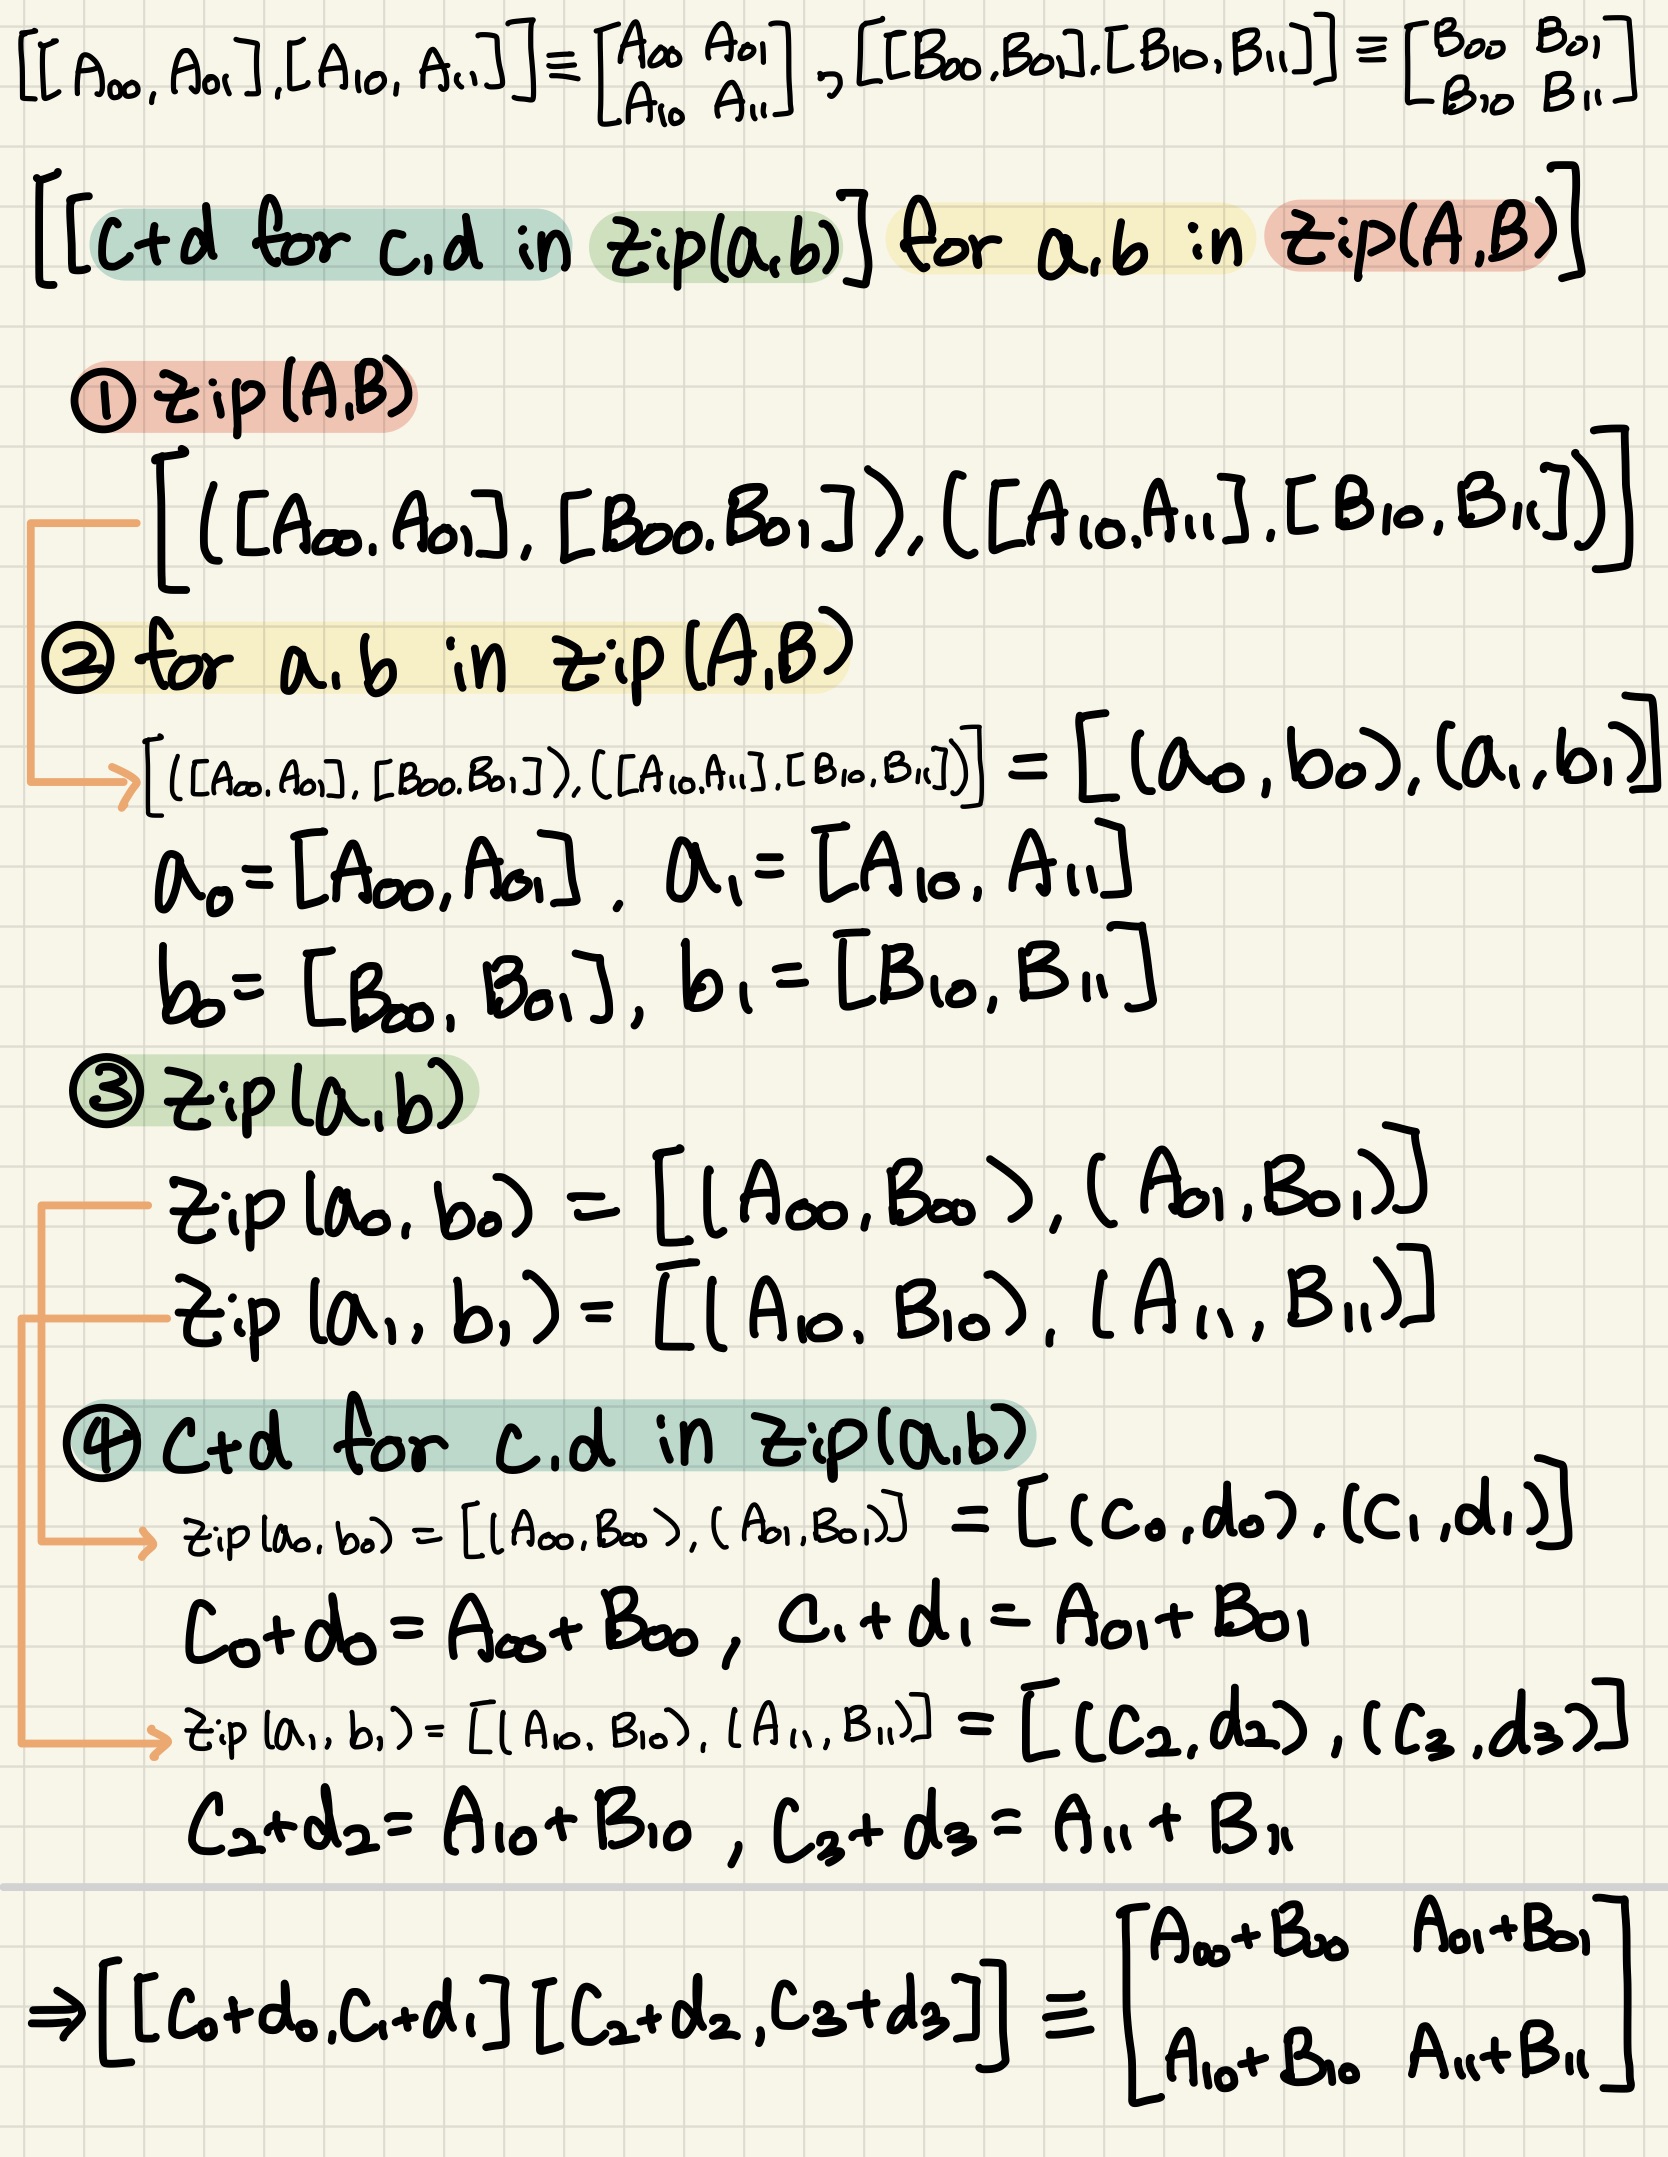 [[A₀₀, A₀₁], [A₁₀, A₁₁]] ≡ [A₀₀ A₀₁
A₁₀ A₁₁], [[B₀₀, B₀₁], [B₁₀, B₁₁]] ≡ [B₀₀ B₀₁
B₁₀ B₁₁]
[[c+d for c,d in zip(a,b)] for a,b in zip(A,B)]
① zip(A,B)
[([A₀₀, A₀₁], [B₀₀, B₀₁]), ([A₁₀, A₁₁], [B₁₀, B₁₁])]
② for a,b in zip(A,B)
[([A₀₀, A₀₁], [B₀₀, B₀₁]), ([A₁₀, A₁₁], [B₁₀, B₁₁])] = [(a₀, b₀), (a₁, b₁)]
a₀ = [A₀₀, A₀₁], a₁ = [A₁₀, A₁₁]
b₀ = [B₀₀, B₀₁], b₁ = [B₁₀, B₁₁]
③ zip(a,b)
zip(a₀, b₀) = [(A₀₀, B₀₀), (A₀₁, B₀₁)]
zip(a₁, b₁) = [(A₁₀, B₁₀), (A₁₁, B₁₁)]
④ c+d for c,d in zip(a,b)
zip(a₀, b₀) = [(A₀₀, B₀₀), (A₀₁, B₀₁)] = [(c₀, d₀), (c₁, d₁)]
c₀+d₀ = A₀₀+B₀₀, c₁+d₁ = A₀₁+B₀₁
zip(a₁, b₁) = [(A₁₀, B₁₀), (A₁₁, B₁₁)] = [(c₂, d₂), (c₃, d₃)]
c₂+d₂ = A₁₀+B₁₀, c₃+d₃ = A₁₁+B₁₁
⇒ [[c₀+d₀, c₁+d₁] [c₂+d₂, c₃+d₃]] ≡ [A₀₀+B₀₀ A₀₁+B₀₁
A₁₀+B₁₀ A₁₁+B₁₁]